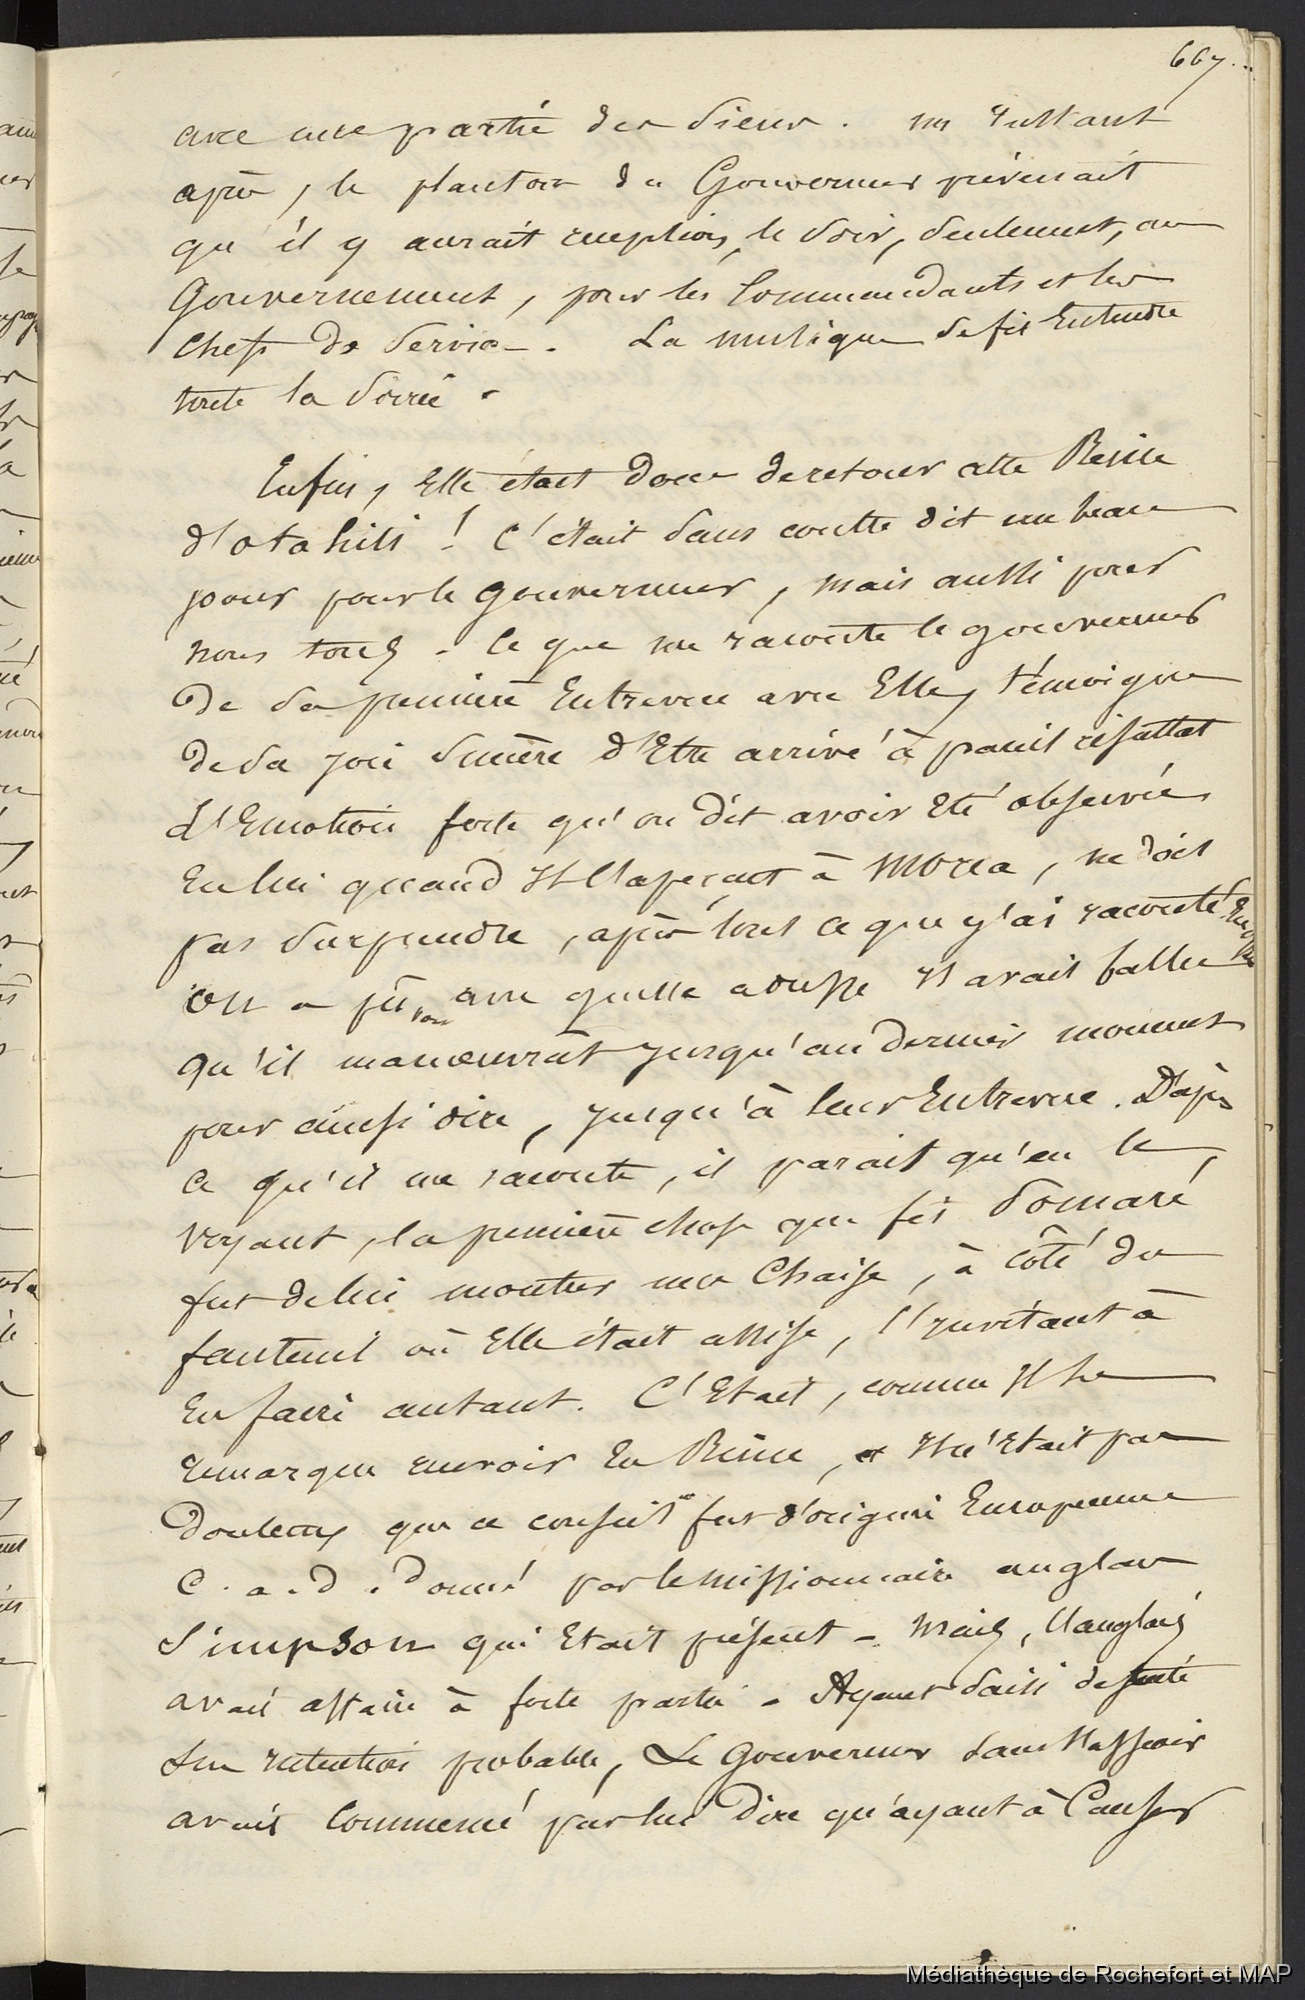 667..
avec une partie des siens. un instant
après, le planton du Gouverneur prévenait
qu'il y aurait reception, le soir, seulement, au
Gouvernement, pour les Commandants et les
Chefs de Service. La musique se fit Entendre
toute la soirée.
Enfin, Elle était donc de retour cette Reine
d'otahiti ! C'était sans contredit un beau
jour pour le gouverneur, mais aussi pour
nous tous. Ce que me raconte le gouverneur
De sa première Entrevue avec Elle, témoigne
de sa joie sincère d'Etre arrivé à pareil résultat
L'Emotion forte qu'on dit avoir Eté observée
En lui quand Il l'aperçut à Morea, ne doit
pas surprendre, après tout ce que j'ai raconté
On a pu voir avec quelle adresse Il avait fallu
qu'il manoeuvrât jusqu'au dernier moment
pour ainsi dire, jusqu'à leur Entrevue. D'après
ce qu'il me raconte, il parait qu'en le
voyant, la première chose que fit Pomaré,
fut de lui montrer une Chaise, à côté du
fauteuil où Elle était assise, l'invitant à
En faire autant. C'Etait, comme Il le
remarqua recevoir En Reine, et Il n'Etait pas
Douteux que ce conseil fut d'origine Européenne
C.a.d. donné par le missionnaire anglais
Simpson qui Etait présent. Mais, l'anglais
avait affaire à forte partie. Ayant saisi de suite
son intention probable, Le Gouverneur sans s'asseoir
avait Commencé par lui Dire qu'ayant à Causer
Médiathèque de Rochefort et MAP